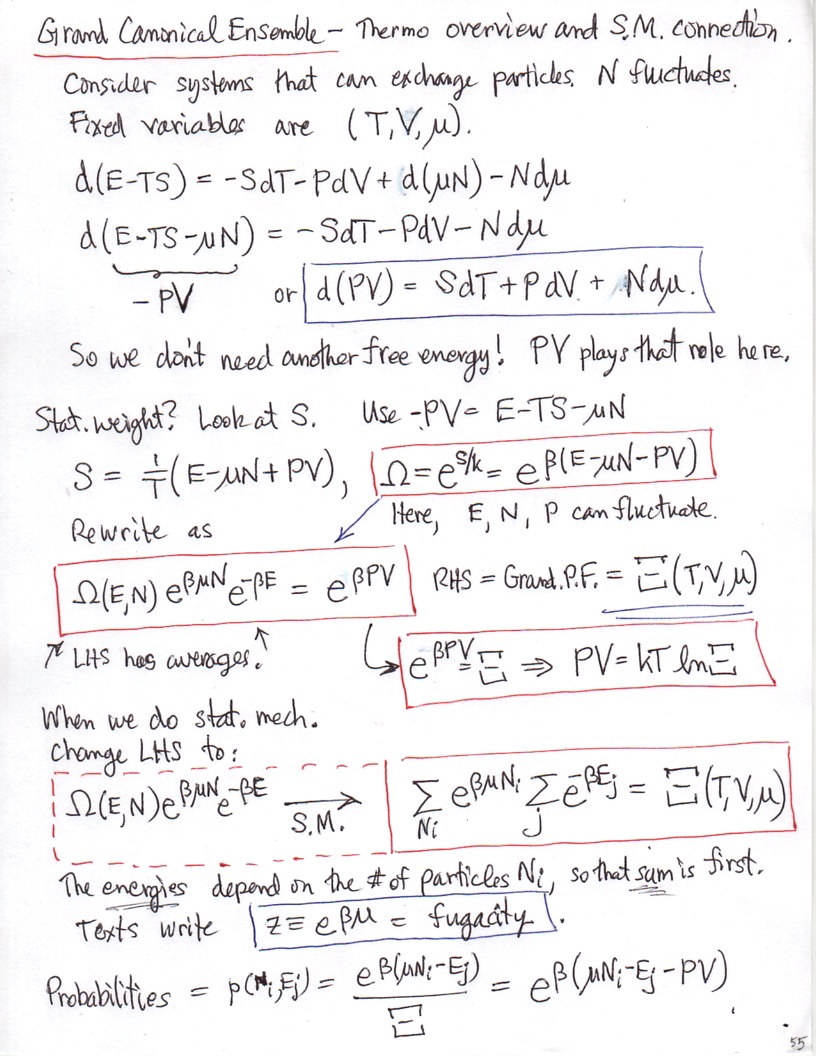 Grand Canonical Ensemble – Thermo overview and S.M. connection.
Consider systems that can exchange particles. N fluctuates.
Fixed variables are (T,V,μ).
d(E-TS) = -SdT-PdV+d(μN)-Ndμ
d(E-TS-μN) = -SdT-PdV-Ndμ
-PV or d(PV) = SdT+PdV + Ndμ.
So we don't need another free energy! PV plays that role here.
Stat. weight? Look at S. Use -PV= E-TS-μN
S = 1/T (E-μN+PV), Ω=e^{S/k}= e^{β(E-μN-PV)}
Rewrite as Here, E, N, P can fluctuate.
Ω(E,N) e^{βμN} e^{-βE} = e^{βPV} RHS = Grand. P.F. = Ξ(T,V,μ)
LHS has averages. e^{βPV} = Ξ ⇒ PV=kT ln Ξ
When we do stat. mech.
change LHS to:
Ω(E,N)e^{βμN}e^{-βE} → S.M. Σ_{Ni} e^{βμN_i} Σ_j e^{-βE_j} = Ξ(T,V,μ)
The energies depend on the # of particles N_i, so that sum is first.
Texts write z≡ e^{βμ} = fugacity.
Probabilities = p(N_i,E_j) = e^{β(μN_i-E_j)} / Ξ = e^{β(μN_i-E_j-PV)}
55